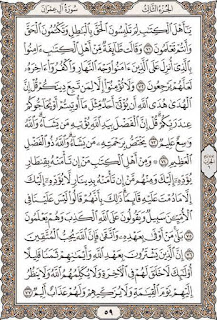 الجزء الثالث سورة آل عمران
يَٰٓأَهْلَ ٱلْكِتَٰبِ لِمَ تَلْبِسُونَ ٱلْحَقَّ بِٱلْبَٰطِلِ وَتَكْتُمُونَ ٱلْحَقَّ
وَأَنتُمْ تَعْلَمُونَ ٧١ وَقَالَت طَّآئِفَةٌ مِّنْ أَهْلِ ٱلْكِتَٰبِ ءَامِنُوا۟
بِٱلَّذِىٓ أُنزِلَ عَلَى ٱلَّذِينَ ءَامَنُوا۟ وَجْهَ ٱلنَّهَارِ وَٱكْفُرُوٓا۟ ءَاخِرَهُۥ
لَعَلَّهُمْ يَرْجِعُونَ ٧٢ وَلَا تُؤْمِنُوٓا۟ إِلَّا لِمَن تَبِعَ دِينَكُمْ قُلْ إِنَّ
ٱلْهُدَىٰ هُدَى ٱللَّهِ أَن يُؤْتَىٰٓ أَحَدٌ مِّثْلَ مَآ أُوتِيتُمْ أَوْ يُحَآجُّوكُمْ
عِندَ رَبِّكُمْ قُلْ إِنَّ ٱلْفَضْلَ بِيَدِ ٱللَّهِ يُؤْتِيهِ مَن يَشَآءُ وَٱللَّهُ
وَٰسِعٌ عَلِيمٌ ٧٣ يَخْتَصُّ بِرَحْمَتِهِۦ مَن يَشَآءُ وَٱللَّهُ ذُو ٱلْفَضْلِ
ٱلْعَظِيمِ ٧٤ وَمِنْ أَهْلِ ٱلْكِتَٰبِ مَنْ إِن تَأْمَنْهُ بِقِنطَارٍ
يُؤَدِّهِۦٓ إِلَيْكَ وَمِنْهُم مَّنْ إِن تَأْمَنْهُ بِدِينَارٍ لَّا يُؤَدِّهِۦٓ إِلَيْكَ
إِلَّا مَا دُمْتَ عَلَيْهِ قَآئِمًا ذَٰلِكَ بِأَنَّهُمْ قَالُوا۟ لَيْسَ عَلَيْنَا فِى
ٱلْأُمِّيِّۦنَ سَبِيلٌ وَيَقُولُونَ عَلَى ٱللَّهِ ٱلْكَذِبَ وَهُمْ يَعْلَمُونَ
٧٥ بَلَىٰ مَنْ أَوْفَىٰ بِعَهْدِهِۦ وَٱتَّقَىٰ فَإِنَّ ٱللَّهَ يُحِبُّ ٱلْمُتَّقِينَ
٧٦ إِنَّ ٱلَّذِينَ يَشْتَرُونَ بِعَهْدِ ٱللَّهِ وَأَيْمَٰنِهِمْ ثَمَنًا قَلِيلًا
أُو۟لَٰٓئِكَ لَا خَلَٰقَ لَهُمْ فِى ٱلْءَاخِرَةِ وَلَا يُكَلِّمُهُمُ ٱللَّهُ وَلَا يَنظُرُ
إِلَيْهِمْ يَوْمَ ٱلْقِيَٰمَةِ وَلَا يُزَكِّيهِمْ وَلَهُمْ عَذَابٌ أَلِيمٌ ٧٧
٥٩